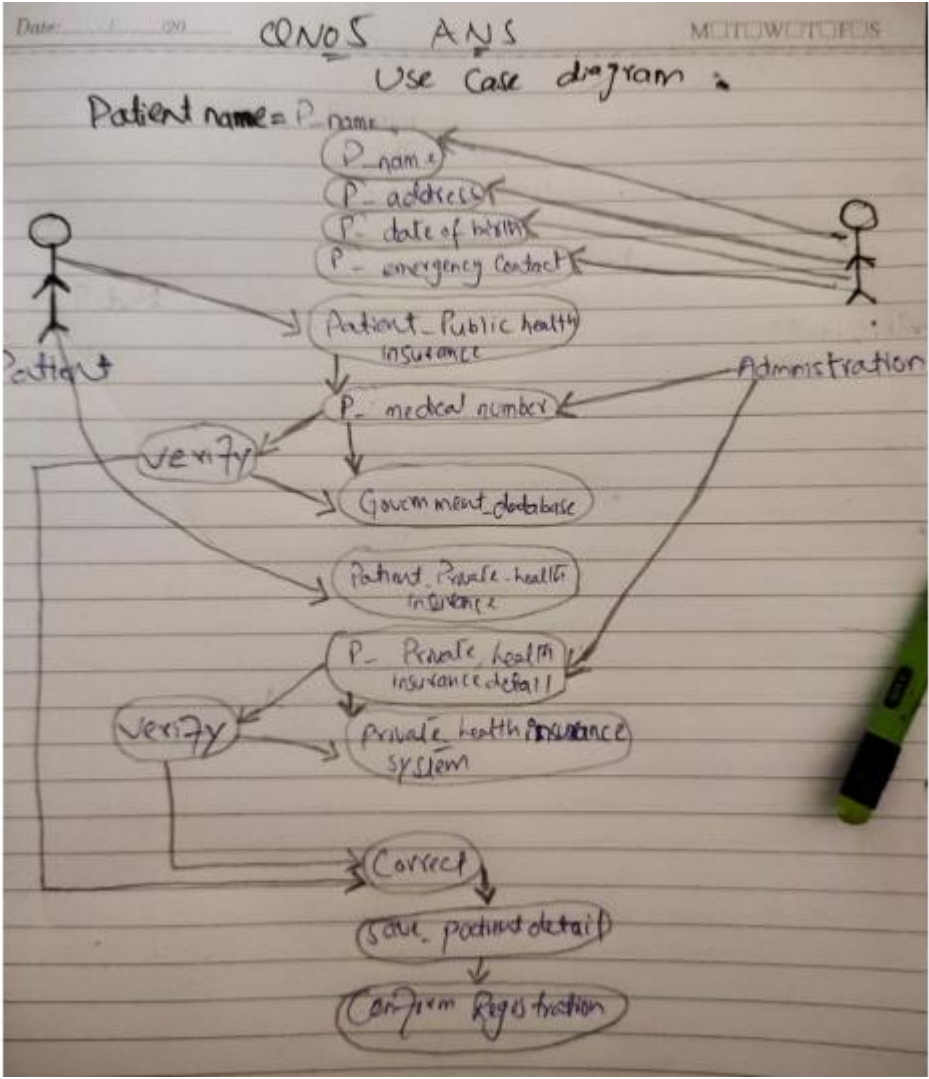 Date: / /20 M T W T F S
QNO5 ANS
Use Case diagram :
Patient name = P_name
P_name
P_ address
P_ date of birth
P_ emergency Contact
Patient_Public health
insurance
Patient
Admnistration
P_ medical number
verify
Government_database
Patient_Private_health
insurance
P_ Private_health
insurance detail
Verify
private_health insurance
system
Correct
Save_ patient detail
Confirm Registration